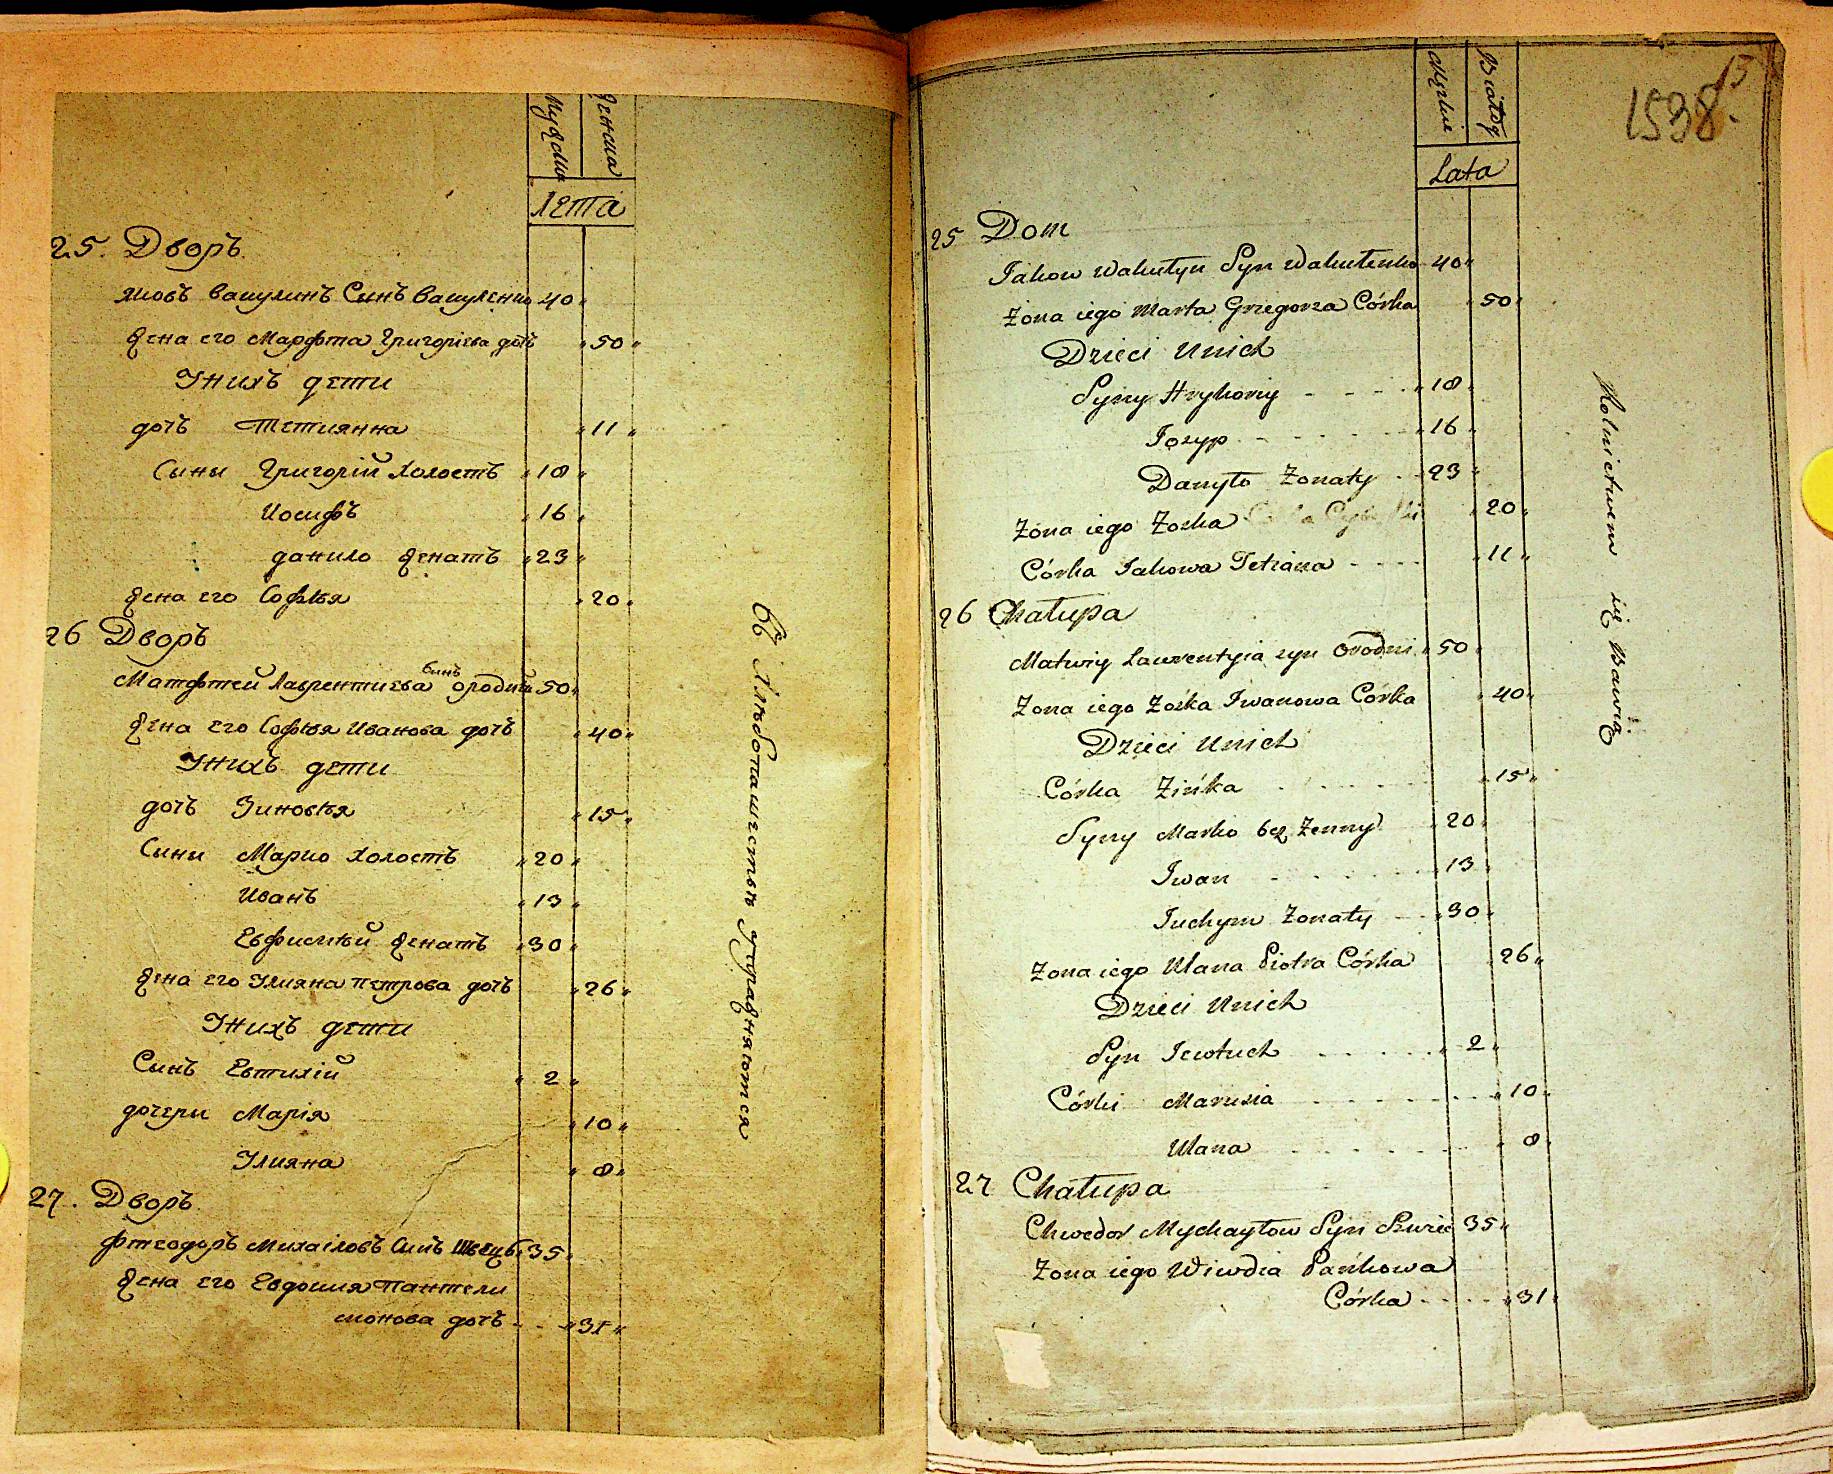 Мужска Женска
Лета
25. Дворъ
Яковъ Вакулинъ Синъ Вакуленко 40
Жена его Марфта Григоріева дочь 50
Уних дети
дочь Тетиянна 11
Сыны Григорій Холостъ 18
Иосифъ 16
данило женатъ 23
Жена его Софья 20
26 Дворъ
Матфтей Лаврентиева Синъ ородній 50
Жена его Софья Иванова дочь 40
Унихъ дети
дочь Зиновья 15
Сини Марко Холостъ 20
Иванъ 13
Евфисмъй женатъ 30
Жена его Улияна петрова дочь 26
Унихъ дети
Синъ Евтихій 2
дочеры Марія 10
Улияна 8
27. Дворъ
Фтеодоръ Михаіловъ Синъ Швецъ 35
Жена его Евдокия Пантели
монова дочь 31
Въ Хлѣбопашестве упражняются
1538.
13
Męzkie Białey
Lata
25 Dom
Jakow Wakułyn Syn Wakulenko 40
Żona iego Marta Grzegorza Córka 50
Dzieci Unich
Syny Hryhoriy 18
Jozyp 16
Danyło Żonaty 23
Żona iego Zoska 20
Córka Jakowa Tetiana 11
26 Chałupa
Matwiy Laurentyia syn Orodni 50
Żona iego Zośka Iwanowa Córka 40
Dzieci Unich
Córka Zińka 15
Syny Marko bez Żenny 20
Iwan 13
Juchym Żonaty 30
Żona iego Ulana Piotra Córka 26
Dzieci Unich
Syn Jewtuch 2
Córki Marusia 10
Ulana 8
27 Chałupa
Chwedor Mychayłow Syn Szwiec 35
Żona iego Wiwdia Pańkowa
Córka 31
Rolnictwem się Bawią